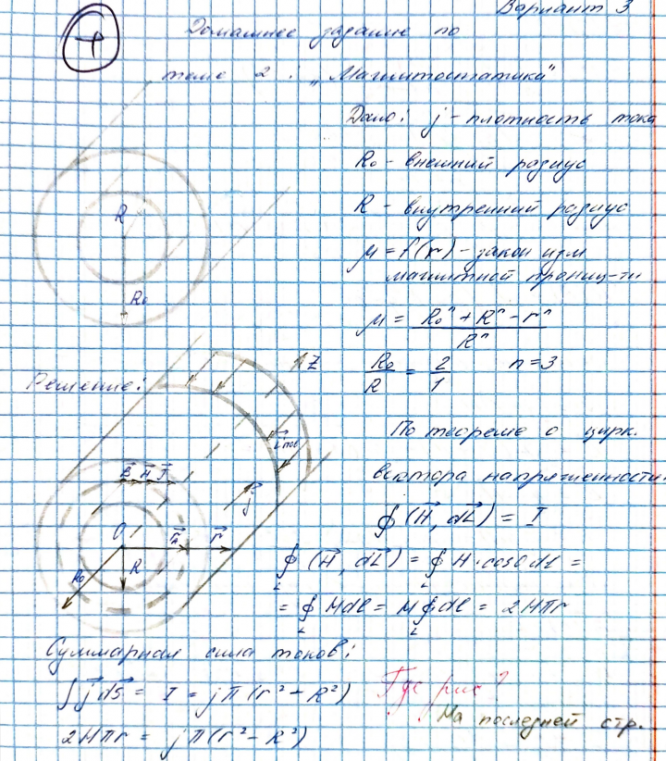 Вариант 3
Домашнее задание по
теме 2: „Магнитостатика"
Дано: j - плотность тока
R₀ - внешний радиус
R - внутренний радиус
μ = f(r) - закон изм
магнитной прониц-ти
μ = (R₀ⁿ + Rⁿ - rⁿ) / Rⁿ
R₀/R = 2/1 n = 3
R
R₀
Решение:
Z
По теореме о цирк.
вектора напряженности:
∮(H⃗, dL⃗) = I
∮_L (H⃗, dL⃗) = ∮_L H·cos0 dl =
= ∮_L Hdl = H∮_L dl = 2Hπr
B⃗ H⃗ J⃗
j⃗
O
r⃗
R
R₀
Суммарная сила токов:
∫ j⃗ dS⃗ = I = jπ(r² + R²)
Где рис?
На последней стр.
2Hπr = jπ(r² - R²)